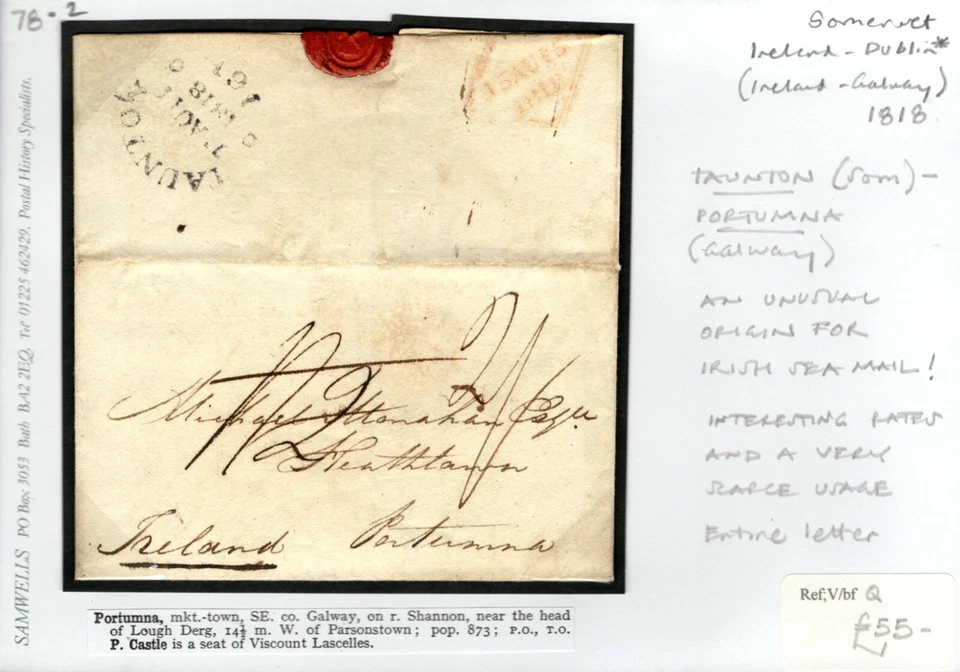 78-2
Somerset
Ireland - Dublin*
(Ireland - Galway)
1818
TAUNTON (Som) -
PORTUMNA
(Galway)
AN UNUSUAL
ORIGIN FOR
IRISH SEA MAIL!
INTERESTING RATES
AND A VERY
SCARCE USAGE
Entire letter
SAMWELLS PO Box 3053 Bath BA2 2EQ. Tel 01225 462429. Postal History Specialists.
TAUNTON
1818
161
Michael Monahan Esqre
Heathtown
Portumna
Ireland
Portumna, mkt.-town, SE. co. Galway, on r. Shannon, near the head
of Lough Derg, 14½ m. W. of Parsonstown; pop. 873; P.O., T.O.
P. Castle is a seat of Viscount Lascelles.
Ref;V/bf Q
£55-